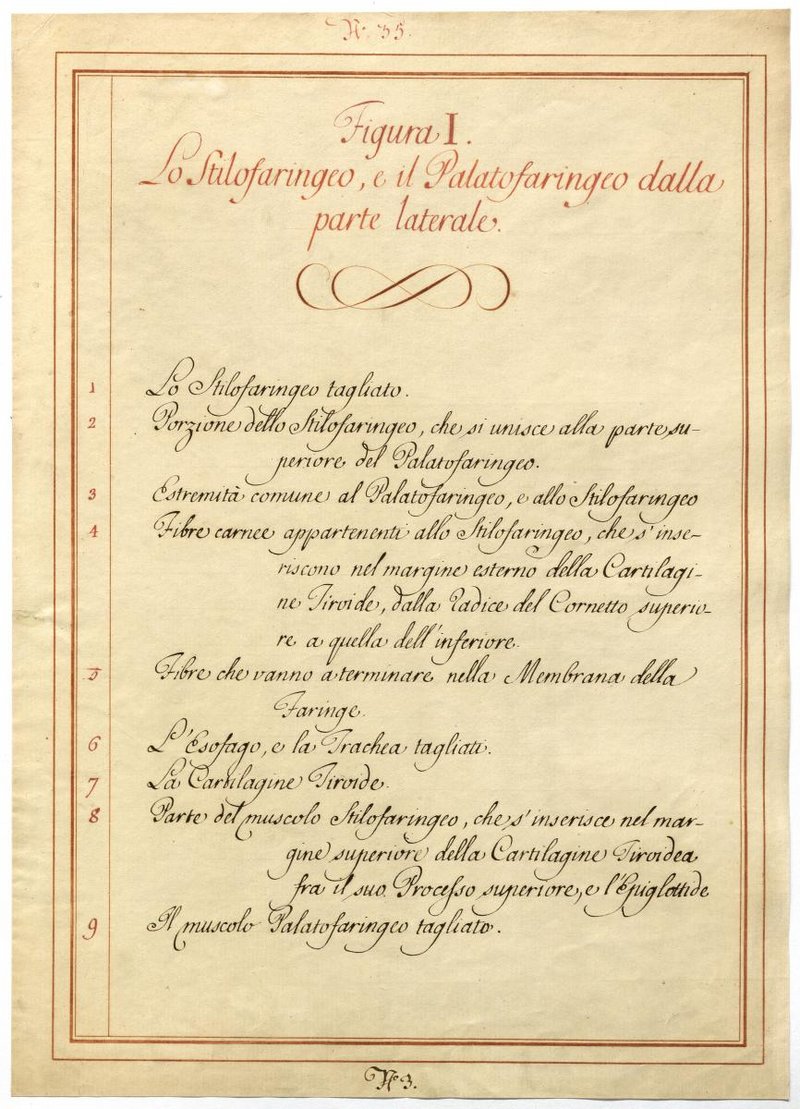 N.º 35.
Figura I.
Lo Stilofaringeo, e il Palatofaringeo dalla
parte laterale.
1 Lo Stilofaringeo tagliato.
2 Porzione dello Stilofaringeo, che si unisce alla parte su-
periore del Palatofaringeo.
3 Estremità comune al Palatofaringeo, e allo Stilofaringeo
4 Fibre carnee appartenenti allo Stilofaringeo, che s'inse-
riscono nel margine esterno della Cartilagi-
ne Tiroide, dalla Radice del Cornetto superio-
re a quella dell'inferiore.
5 Fibre che vanno a terminare nella Membrana della
Faringe.
6 L'Esofago, e la Trachea tagliati.
7 La Cartilagine Tiroide.
8 Parte del muscolo Stilofaringeo, che s'inserisce nel mar-
gine superiore della Cartilagine Tiroidea
fra il suo Processo superiore, e l'Epiglottide
9 Il muscolo Palatofaringeo tagliato.
Nº 3.